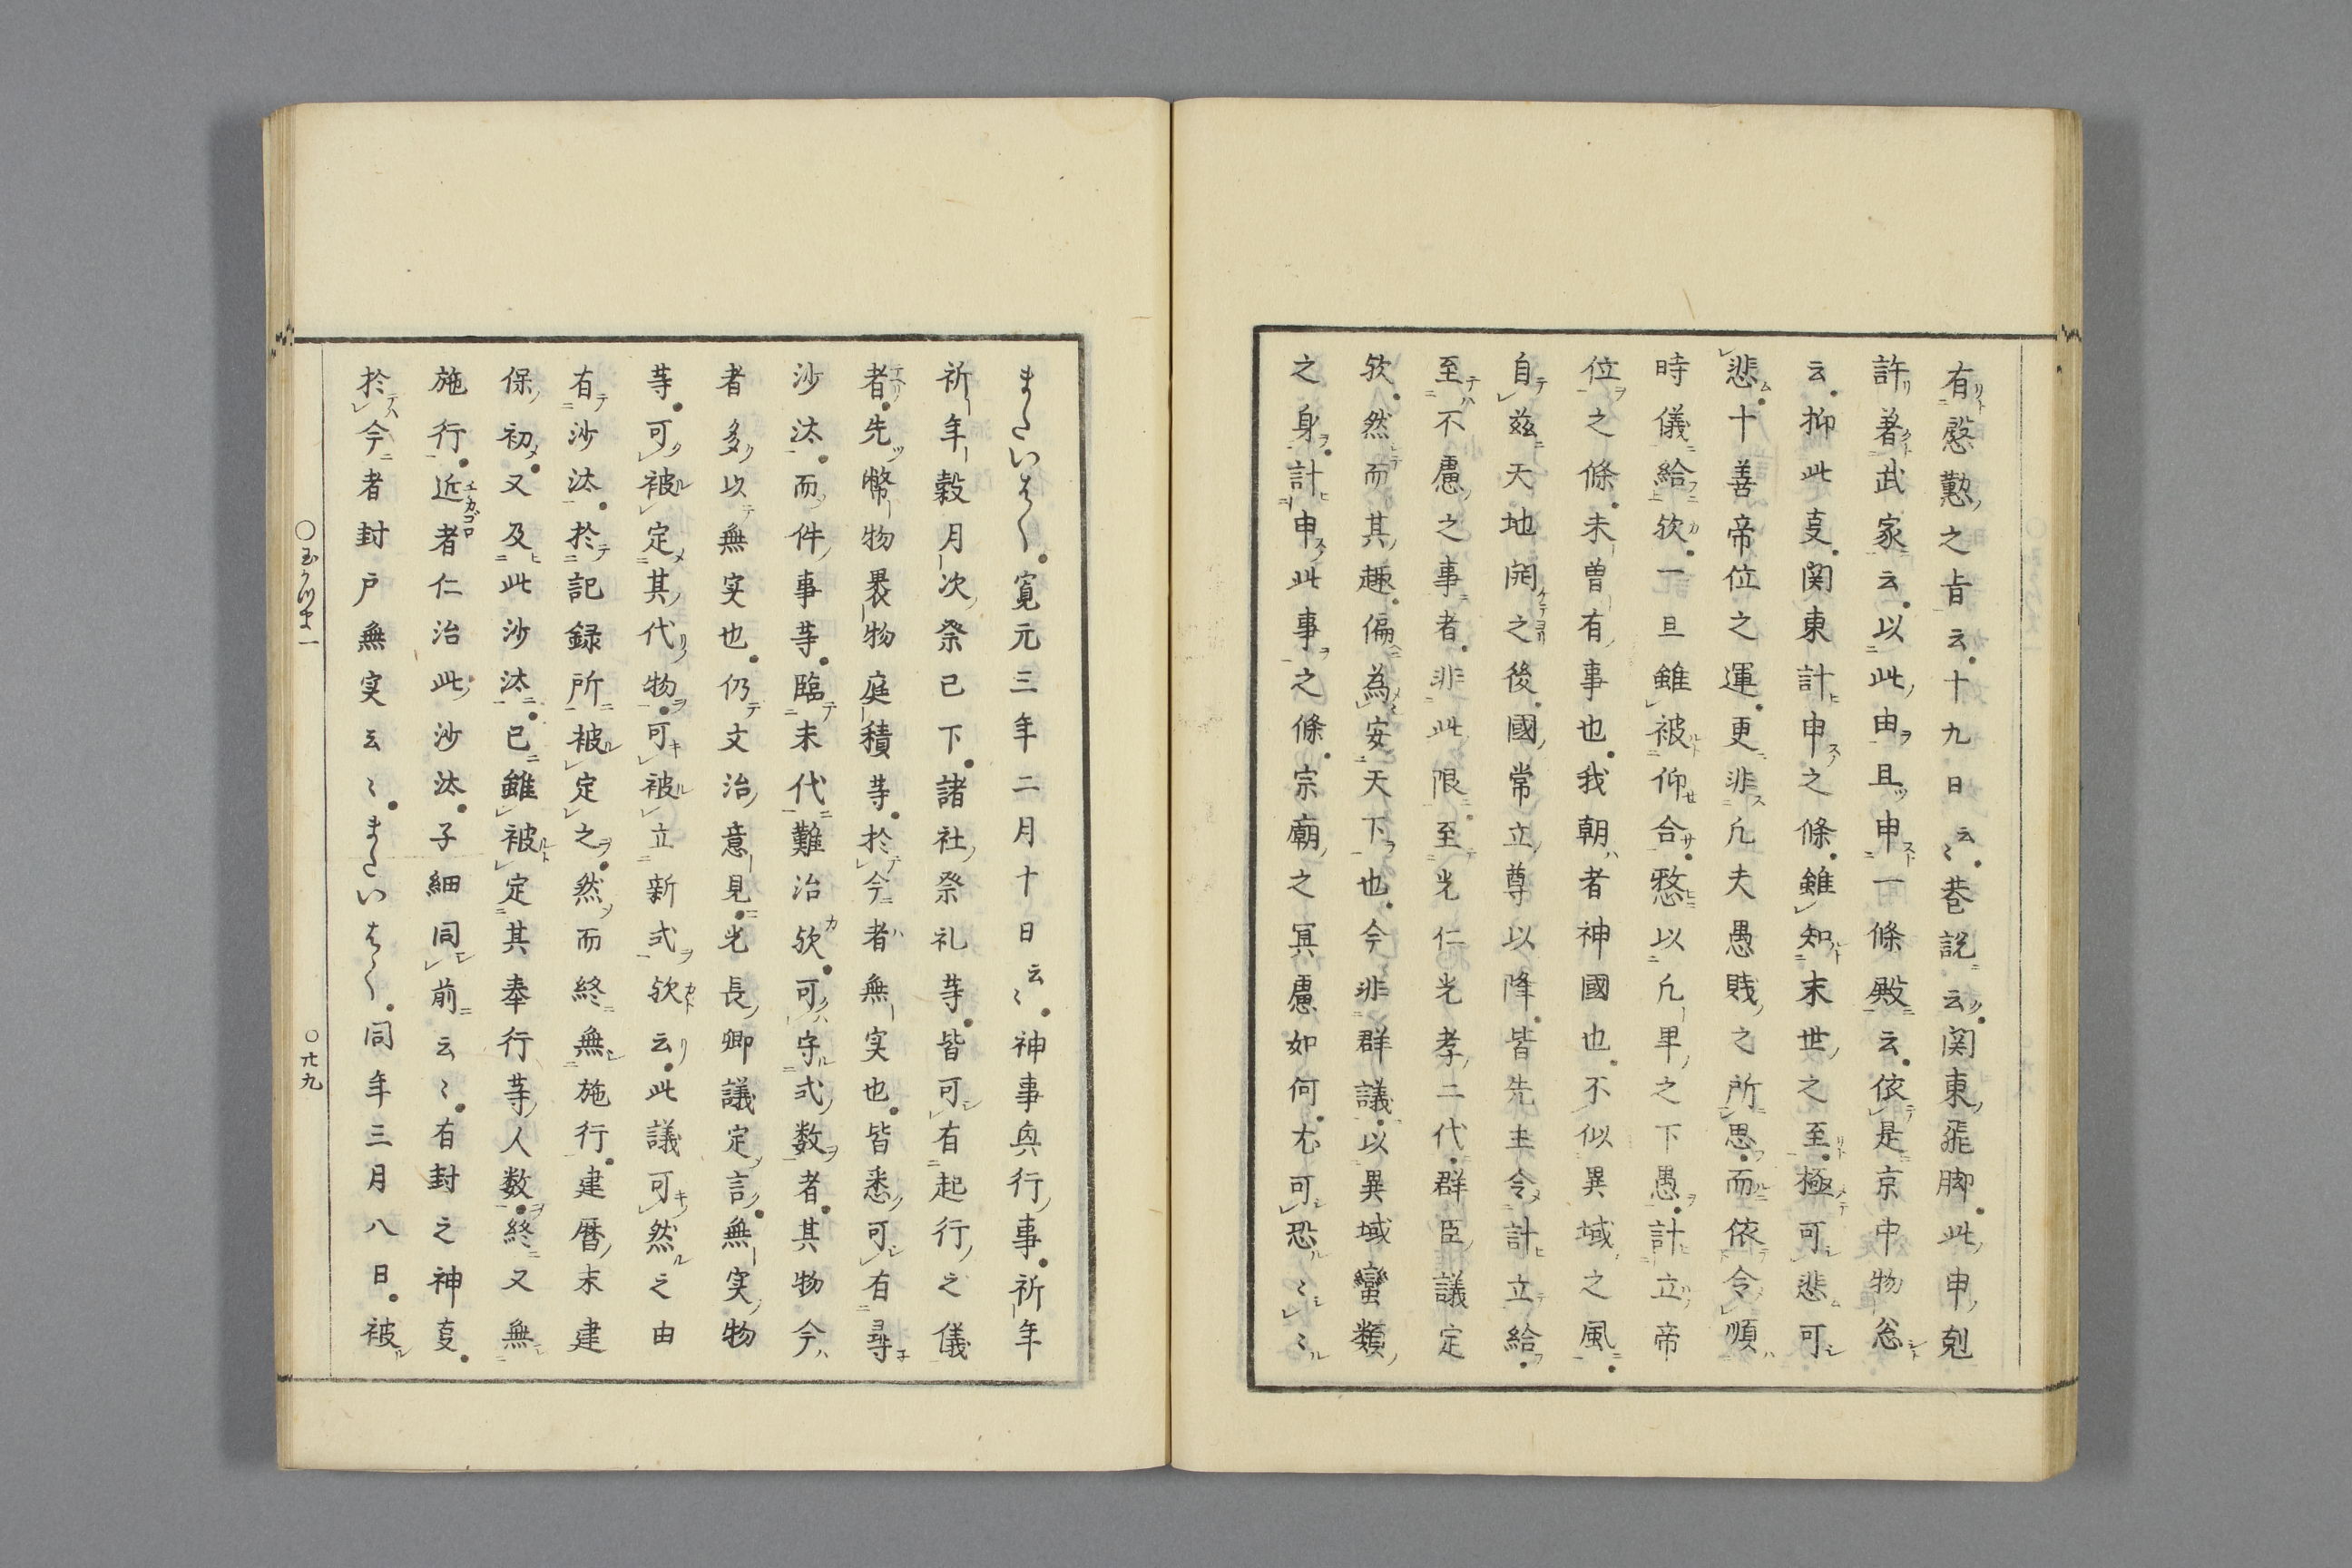 有慇懃之旨云十九日云〻巷説云関東飛脚此申剋
許著武家云以此由且申一條殿云依是京中物忩
云抑此叓関東計申之條雖知末世之至極可悲可
悲十善帝位之運更非凢夫愚賎之所思而依令順
時儀給欤一旦雖被仰合愁以凢卑之下愚計立帝
位之條未曽有事也我朝者神國也不似異域之風
自兹天地開之後國常立尊以降皆先主令計立給
至不慮之事者非此限至光仁光孝二代群臣議定
欤然而其趣偏為安天下也今非群議以異域蠻類
之身計申此事之條宗廟之冥慮如何尤可恐〻〻
またいはく寛元三年二月十日云〻神事興行事祈年
祈年穀月次祭已下諸社祭礼等皆可有起行之儀
者先幣物褁物庭積等於今者無実也皆悉可有尋
沙汰而件事等臨末代難治欤可守式数者其物今
者多以無実也仍文治意見光長卿議定言無実物
等可被定其代物可被立新式欤云此議可然之由
有沙汰於記録所被定之然而終無施行建暦末建
保初又及此沙汰已雖被定其奉行等人数終又無
施行近者仁治此沙汰子細同前云〻有封之神叓
於今者封戸無実云〻またいはく同年三月八日被
○玉かつま一　○廿九